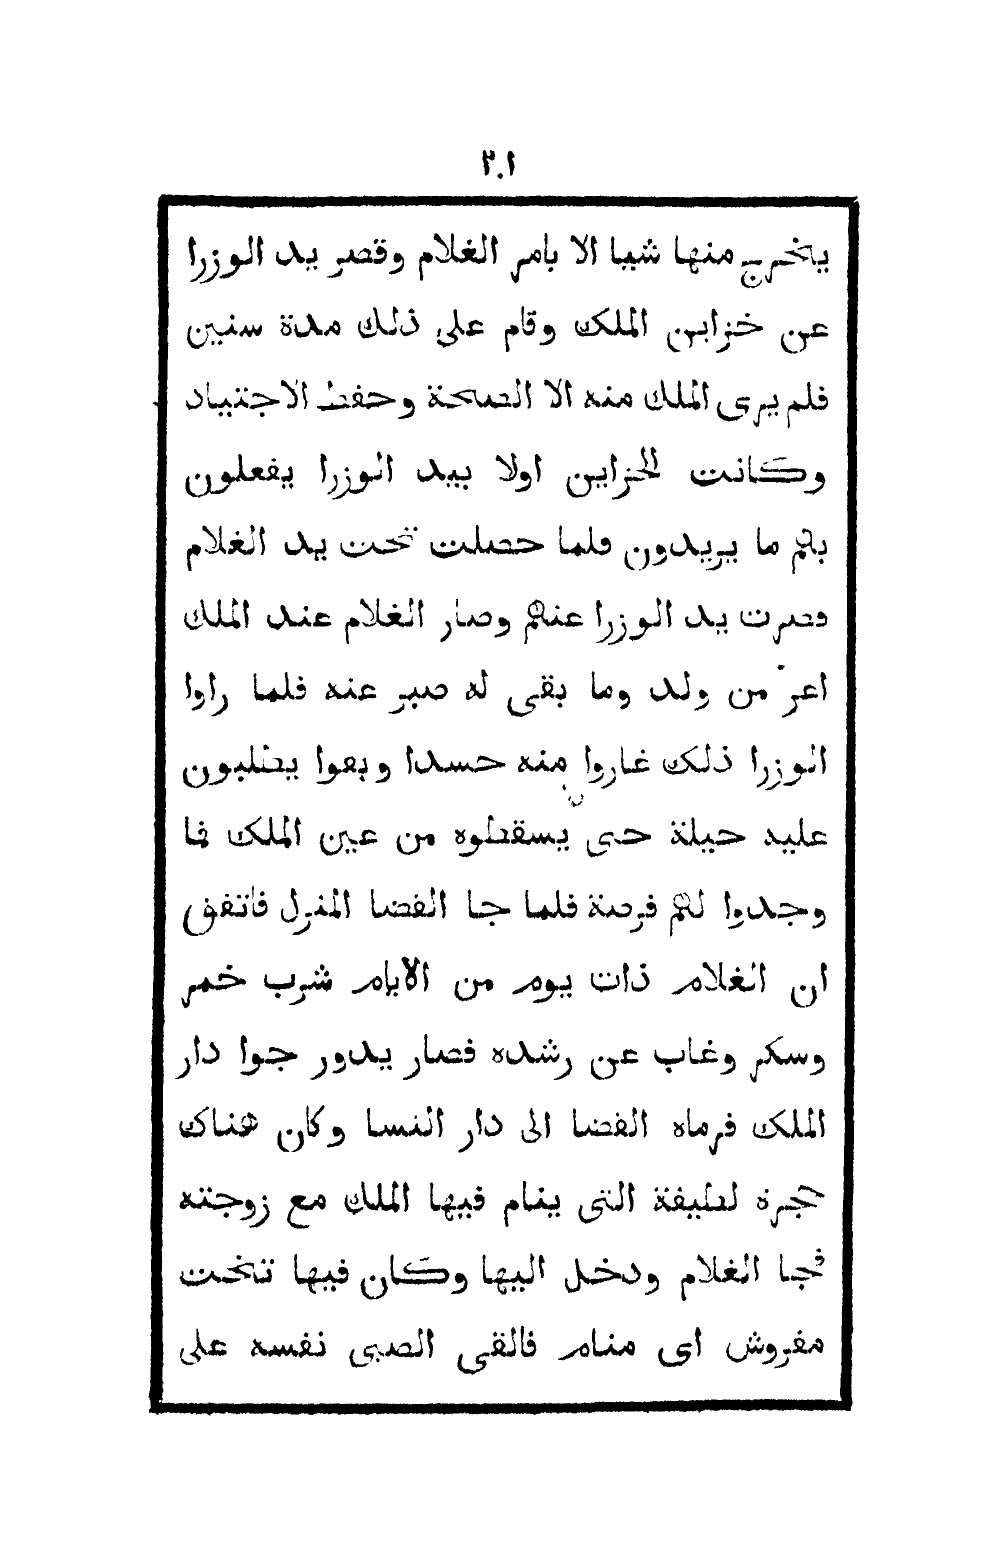 ٢٠١
يخرج منها شيا الا بامر الغلام وقصر يد الوزرا
عن خزاين الملك وقام على ذلك مدة سنين
فلم يرى الملك منه الا الصحة وحفظ الاجتياد
وكانت الخزاين اولا بيد الوزرا يفعلون
بهم ما يريدون فلما حصلت تحت يد الغلام
قصرت يد الوزرا عنهم وصار الغلام عند الملك
اعز من ولد وما بقى له صبر عنه فلما راوا
الوزرا ذلك غاروا منه حسدا وبغوا يطلبون
عليه حيلة حتى يسقطوه من عين الملك فما
وجدوا لهم فرصة فلما جا القضا المنزل فاتفق
ان الغلام ذات يوم من الايام شرب خمر
وسكر وغاب عن رشده فصار يدور جوا دار
الملك فرماه القضا الى دار النسا وكان هناك
حجرة لطيفة التى ينام فيها الملك مع زوجته
فجا الغلام ودخل اليها وكان فيها تخت
مفروش اى منام فالقى الصبى نفسه على